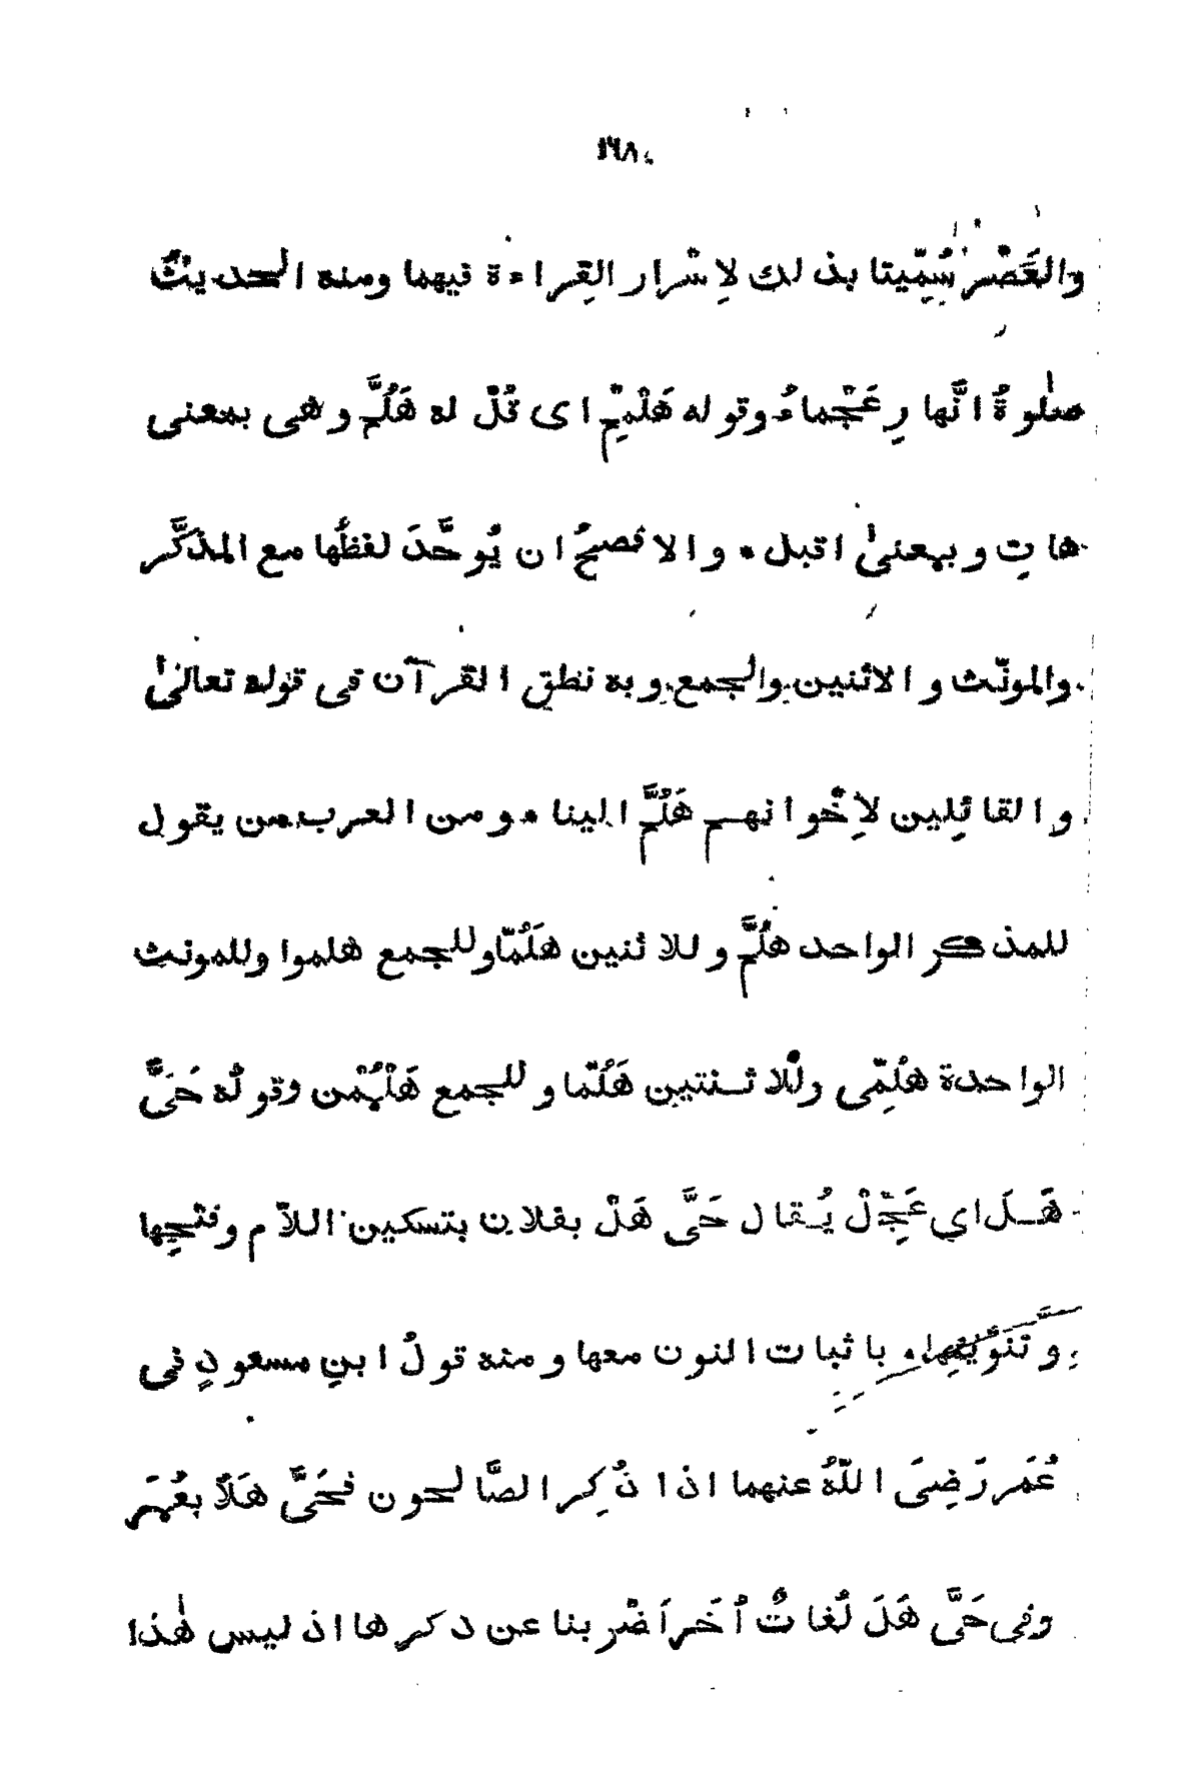 ١٦٨
والعَصْر سُمِّيتا بذلك لِاسْرار القِراءة فيهما ومنه الحديثُ
صلٰوةُ النَّهارِ عَجْماءُ وقوله هَلْمِمْ اى قُلْ له هَلُمَّ وهى بمعنى
هاتِ وبمعنىٰ اقبل * والافصحُ ان يُوحَّدَ لفظُها مع المذكَّر
والمونّث والاثنين والجمع وبه نطق القرآن فى قوله تعالىٰ
والقائِلين لِاخْوانهم هَلُمَّ الينا * ومن العرب من يقول
للمذكر الواحد هلُمَّ وللاثنين هَلُمّا وللجمع هلموا وللمونث
الواحدة هلُمِّى وللاثنتين هَلُمّا وللجمع هَلْمُمْن وقولُه حَىَّ
هَلَ اي عَجِّلْ يُقال حَىَّ هَلْ بفلان بتسكين اللاّم وفتْحِها
وتنْوينِها * باثبات النون معها ومنه قولُ ابنِ مسعودٍ فى
عُمَر رَضِىَ اللّهُ عنهما اذا ذُكِر الصَّالحون فحَىَّ هَلاً بعُمَر
وفى حَىَّ هَلَ لُغاتٌ اُخَر اَضْربنا عن ذكرها اذ ليس هٰذا